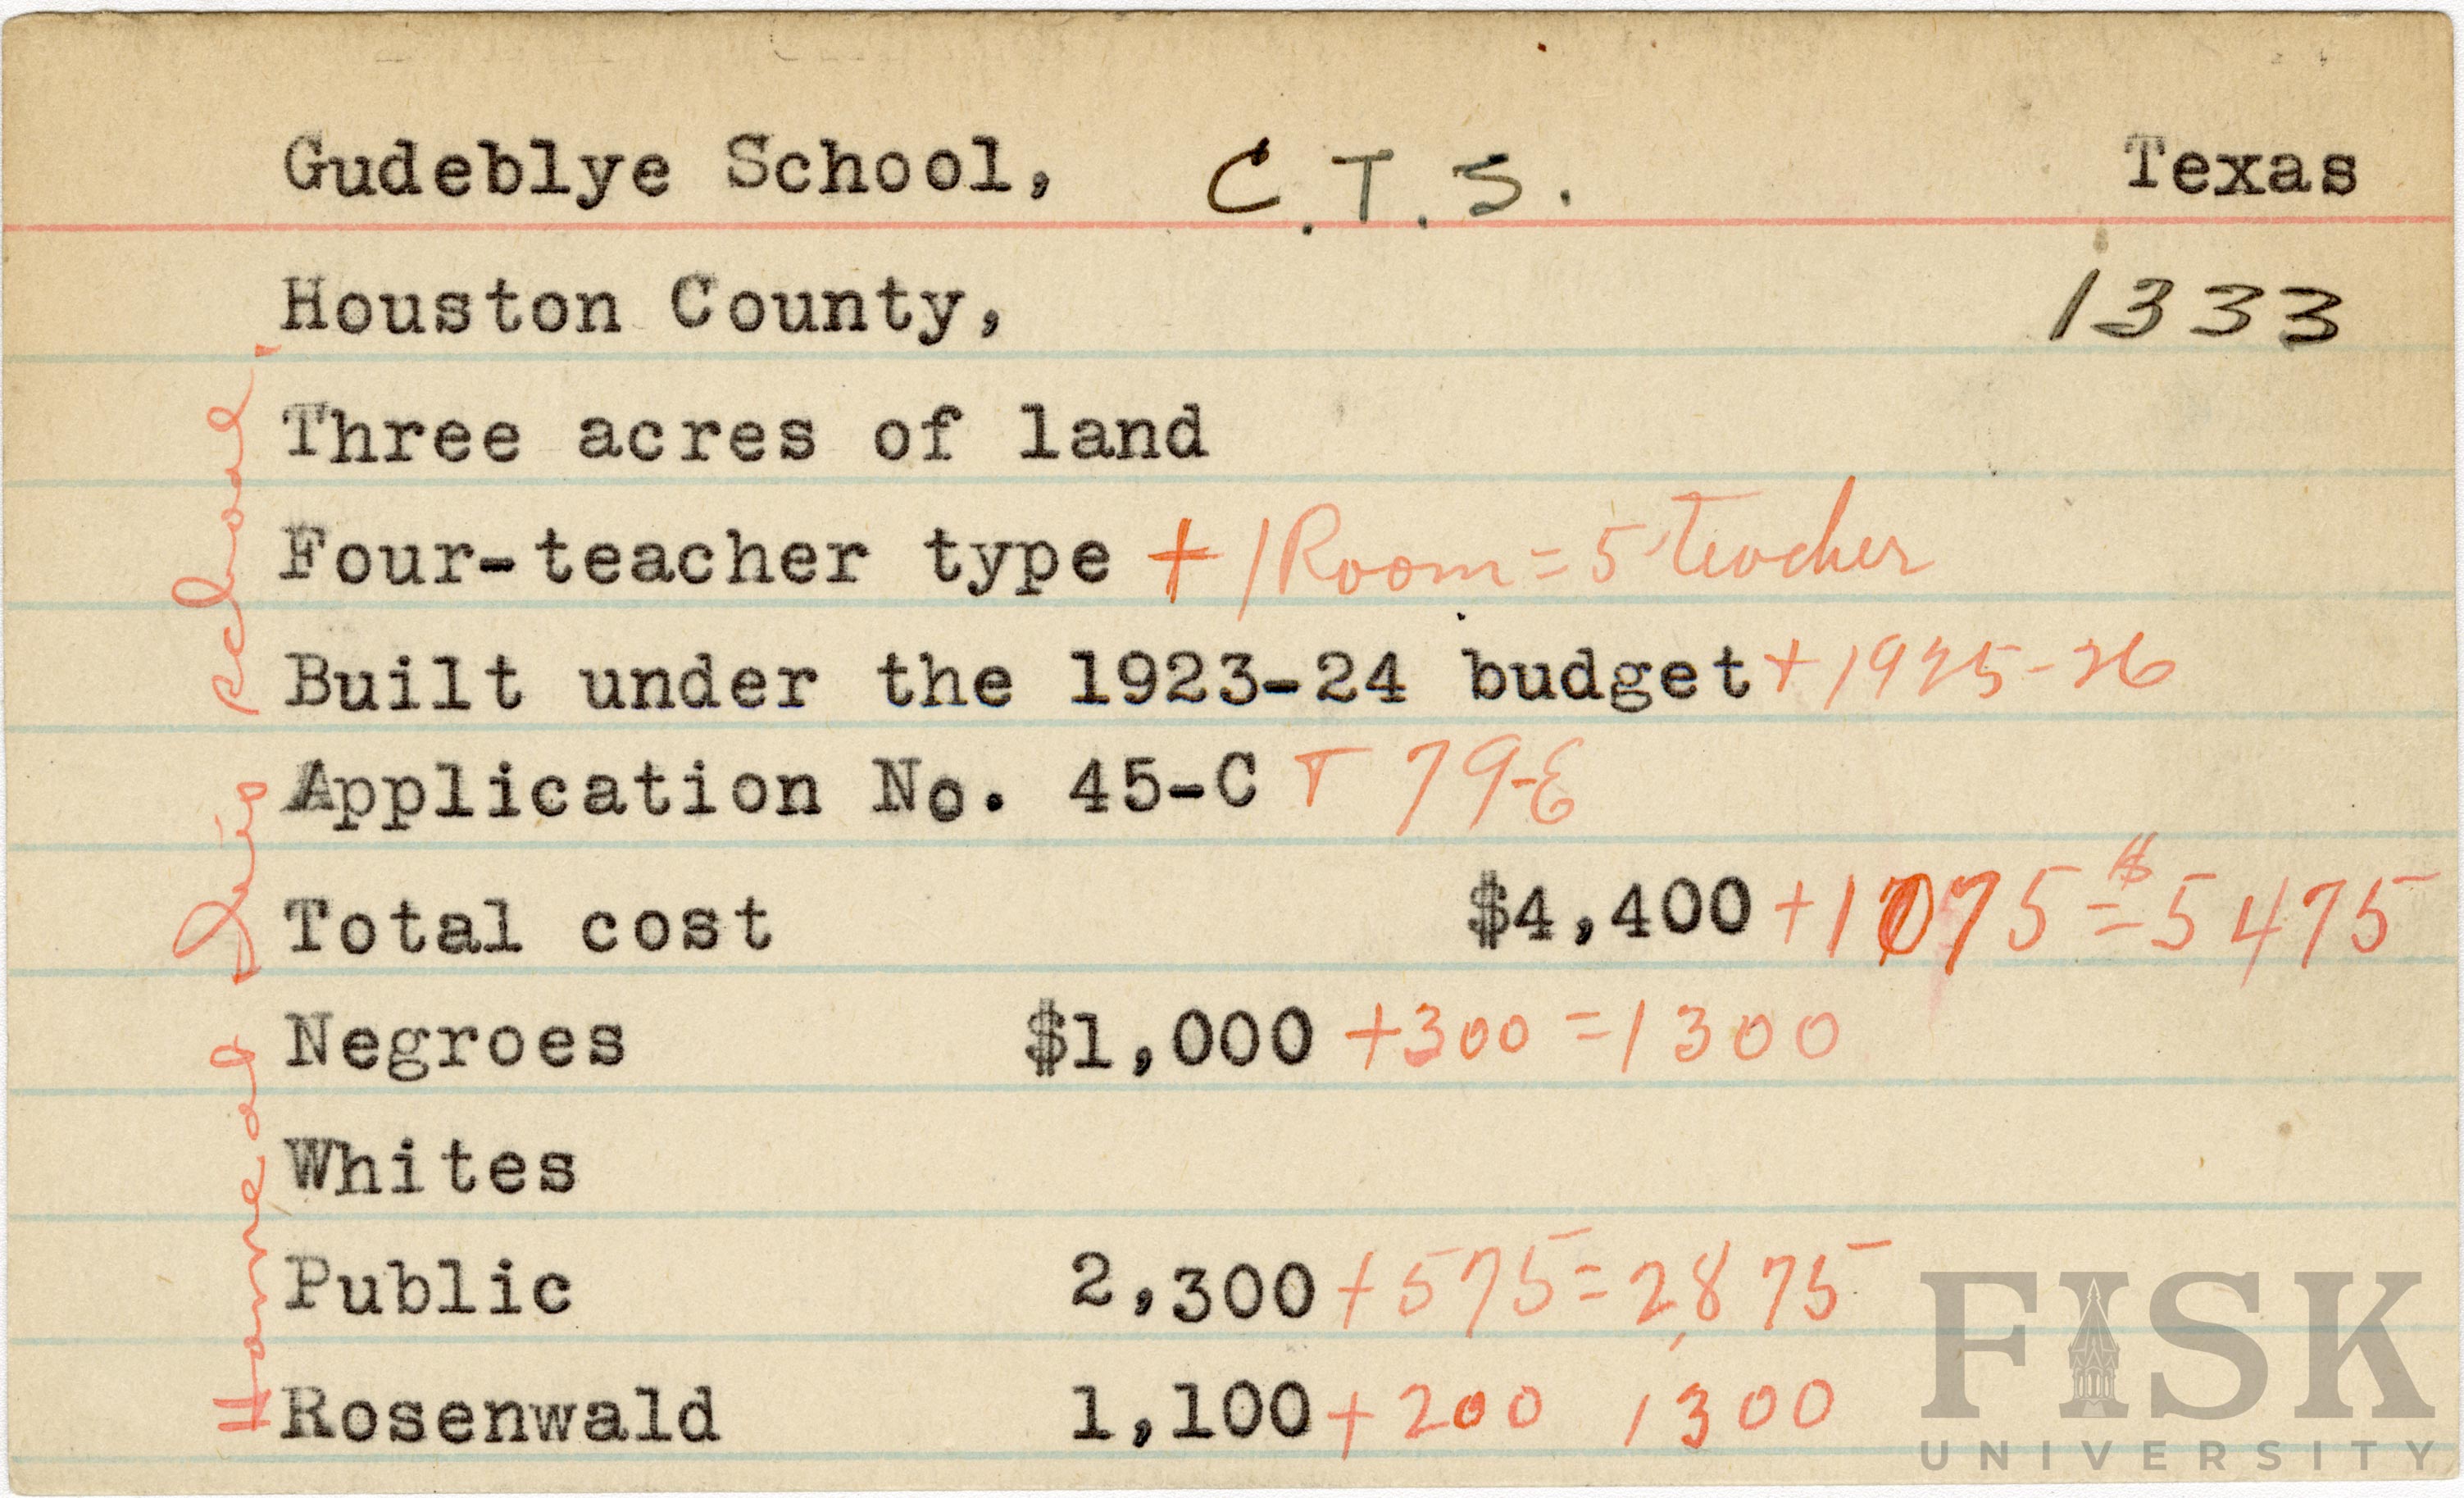 Gudeblye School, C.T.S. Texas
Houston County, 1333
Three acres of land
Four-teacher type + 1 Room = 5 teacher
Built under the 1923-24 budget + 1925-26
Application No. 45-C + 79-E
Total cost $4,400 + 1075 = $5475
Negroes $1,000 + 300 = 1300
Whites
Public 2,300 + 575 = 2875
Rosenwald 1,100 + 200 1300
school.
FISK
UNIVERSITY